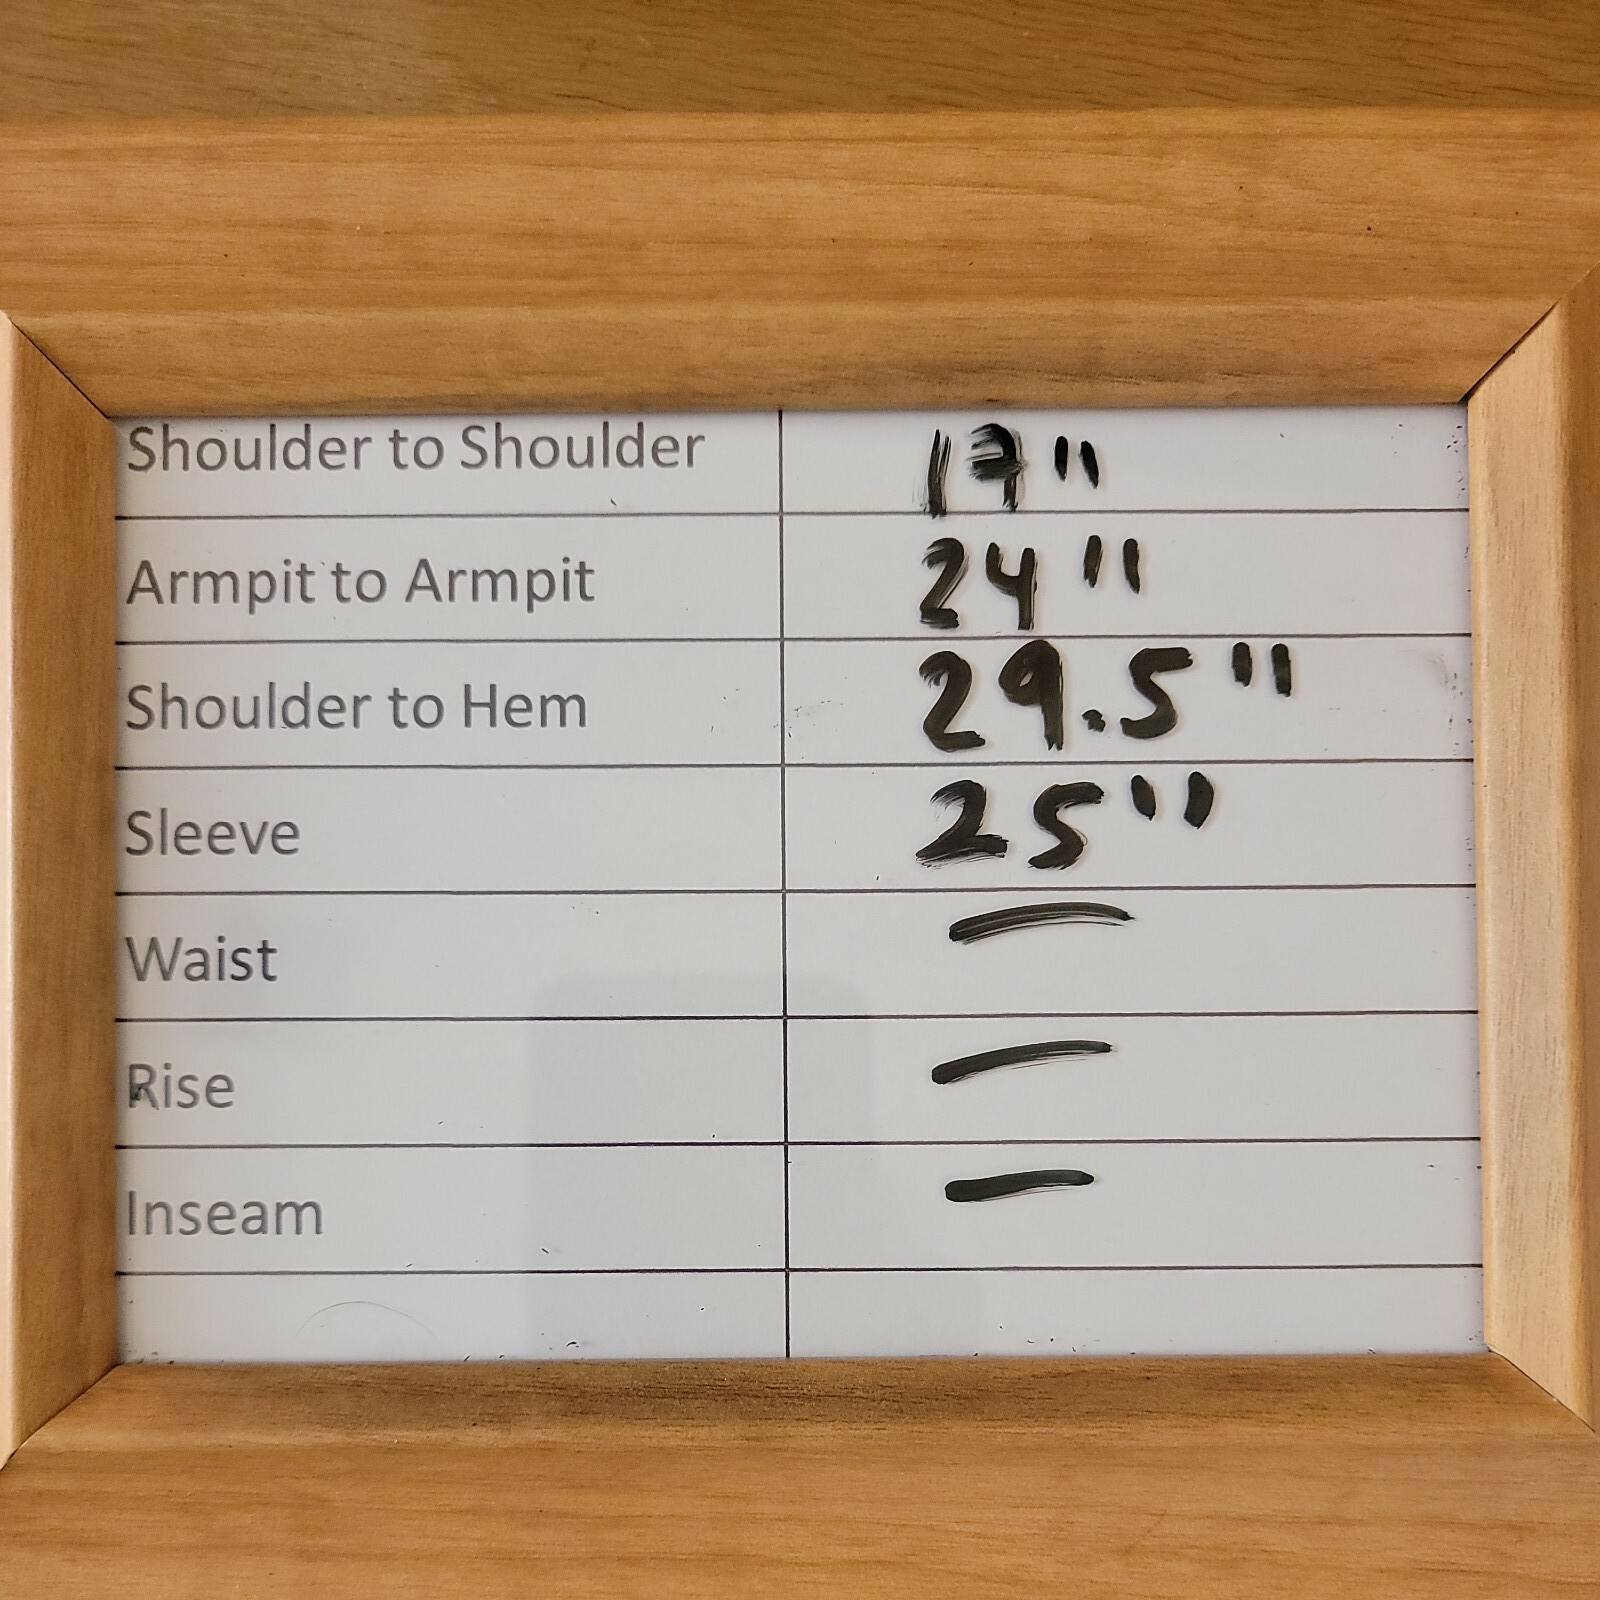 Shoulder to Shoulder 17"
Armpit to Armpit 24"
Shoulder to Hem 29.5"
Sleeve 25"
Waist —
Rise —
Inseam —